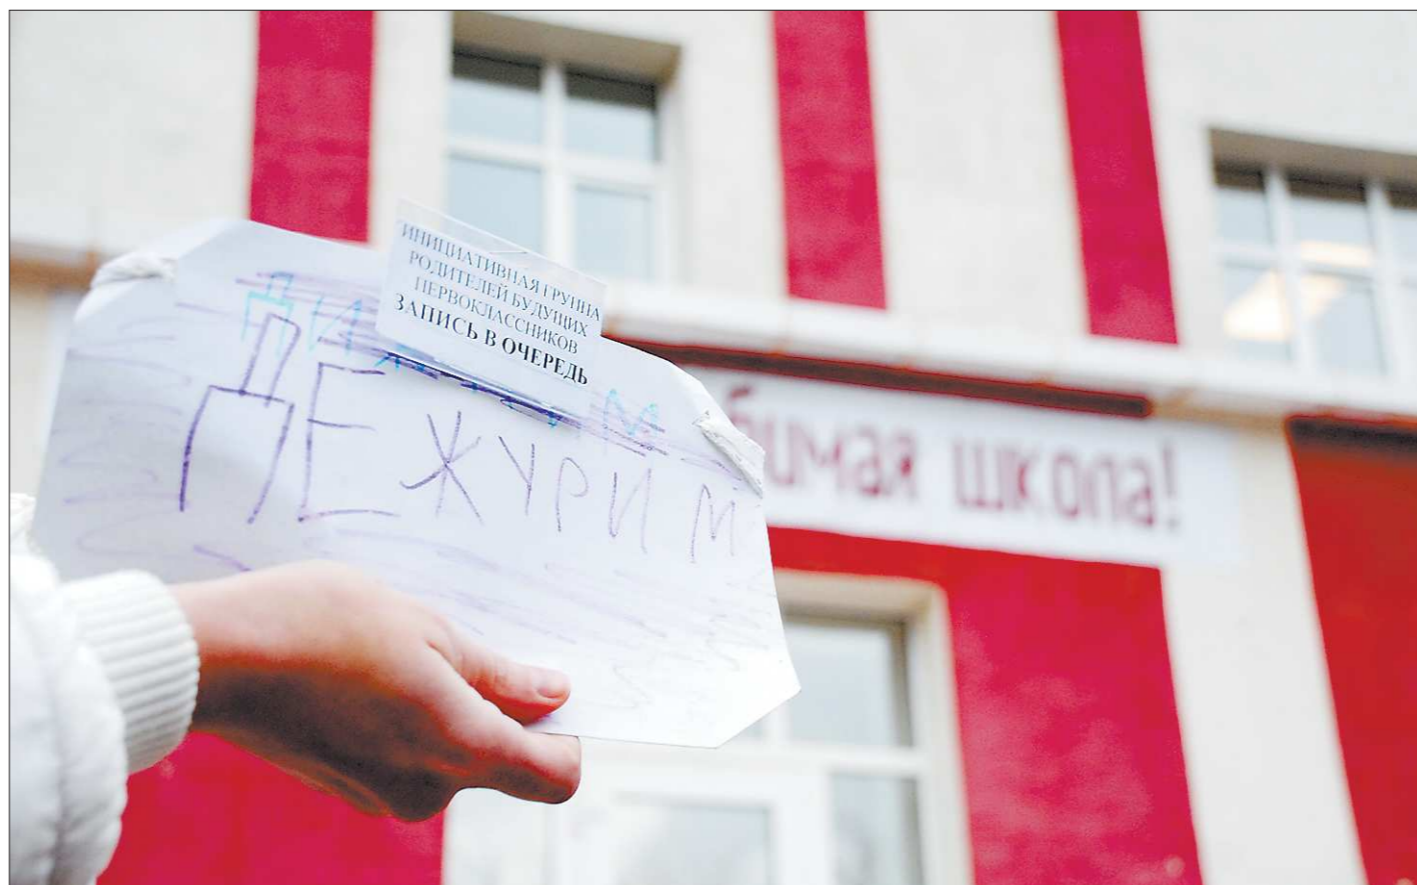 ИНИЦИАТИВНАЯ ГРУППА
РОДИТЕЛЕЙ БУДУЩИХ
ПЕРВОКЛАССНИКОВ
ЗАПИСЬ В ОЧЕРЕДЬ
ДЕЖУРИМ
школа!